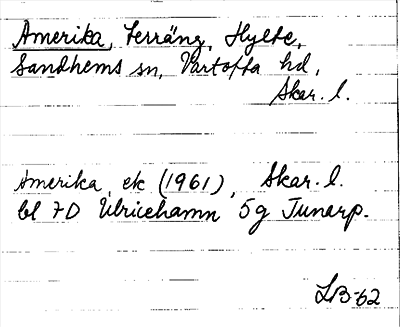 Amerika, Terräng, Hylte,
Sandhems sn, Vartofta hd,
Skar. l.
Amerika, ek (1961), Skar. l.
bl 7D Ulricehamn 5g Tunarp.
LB-62